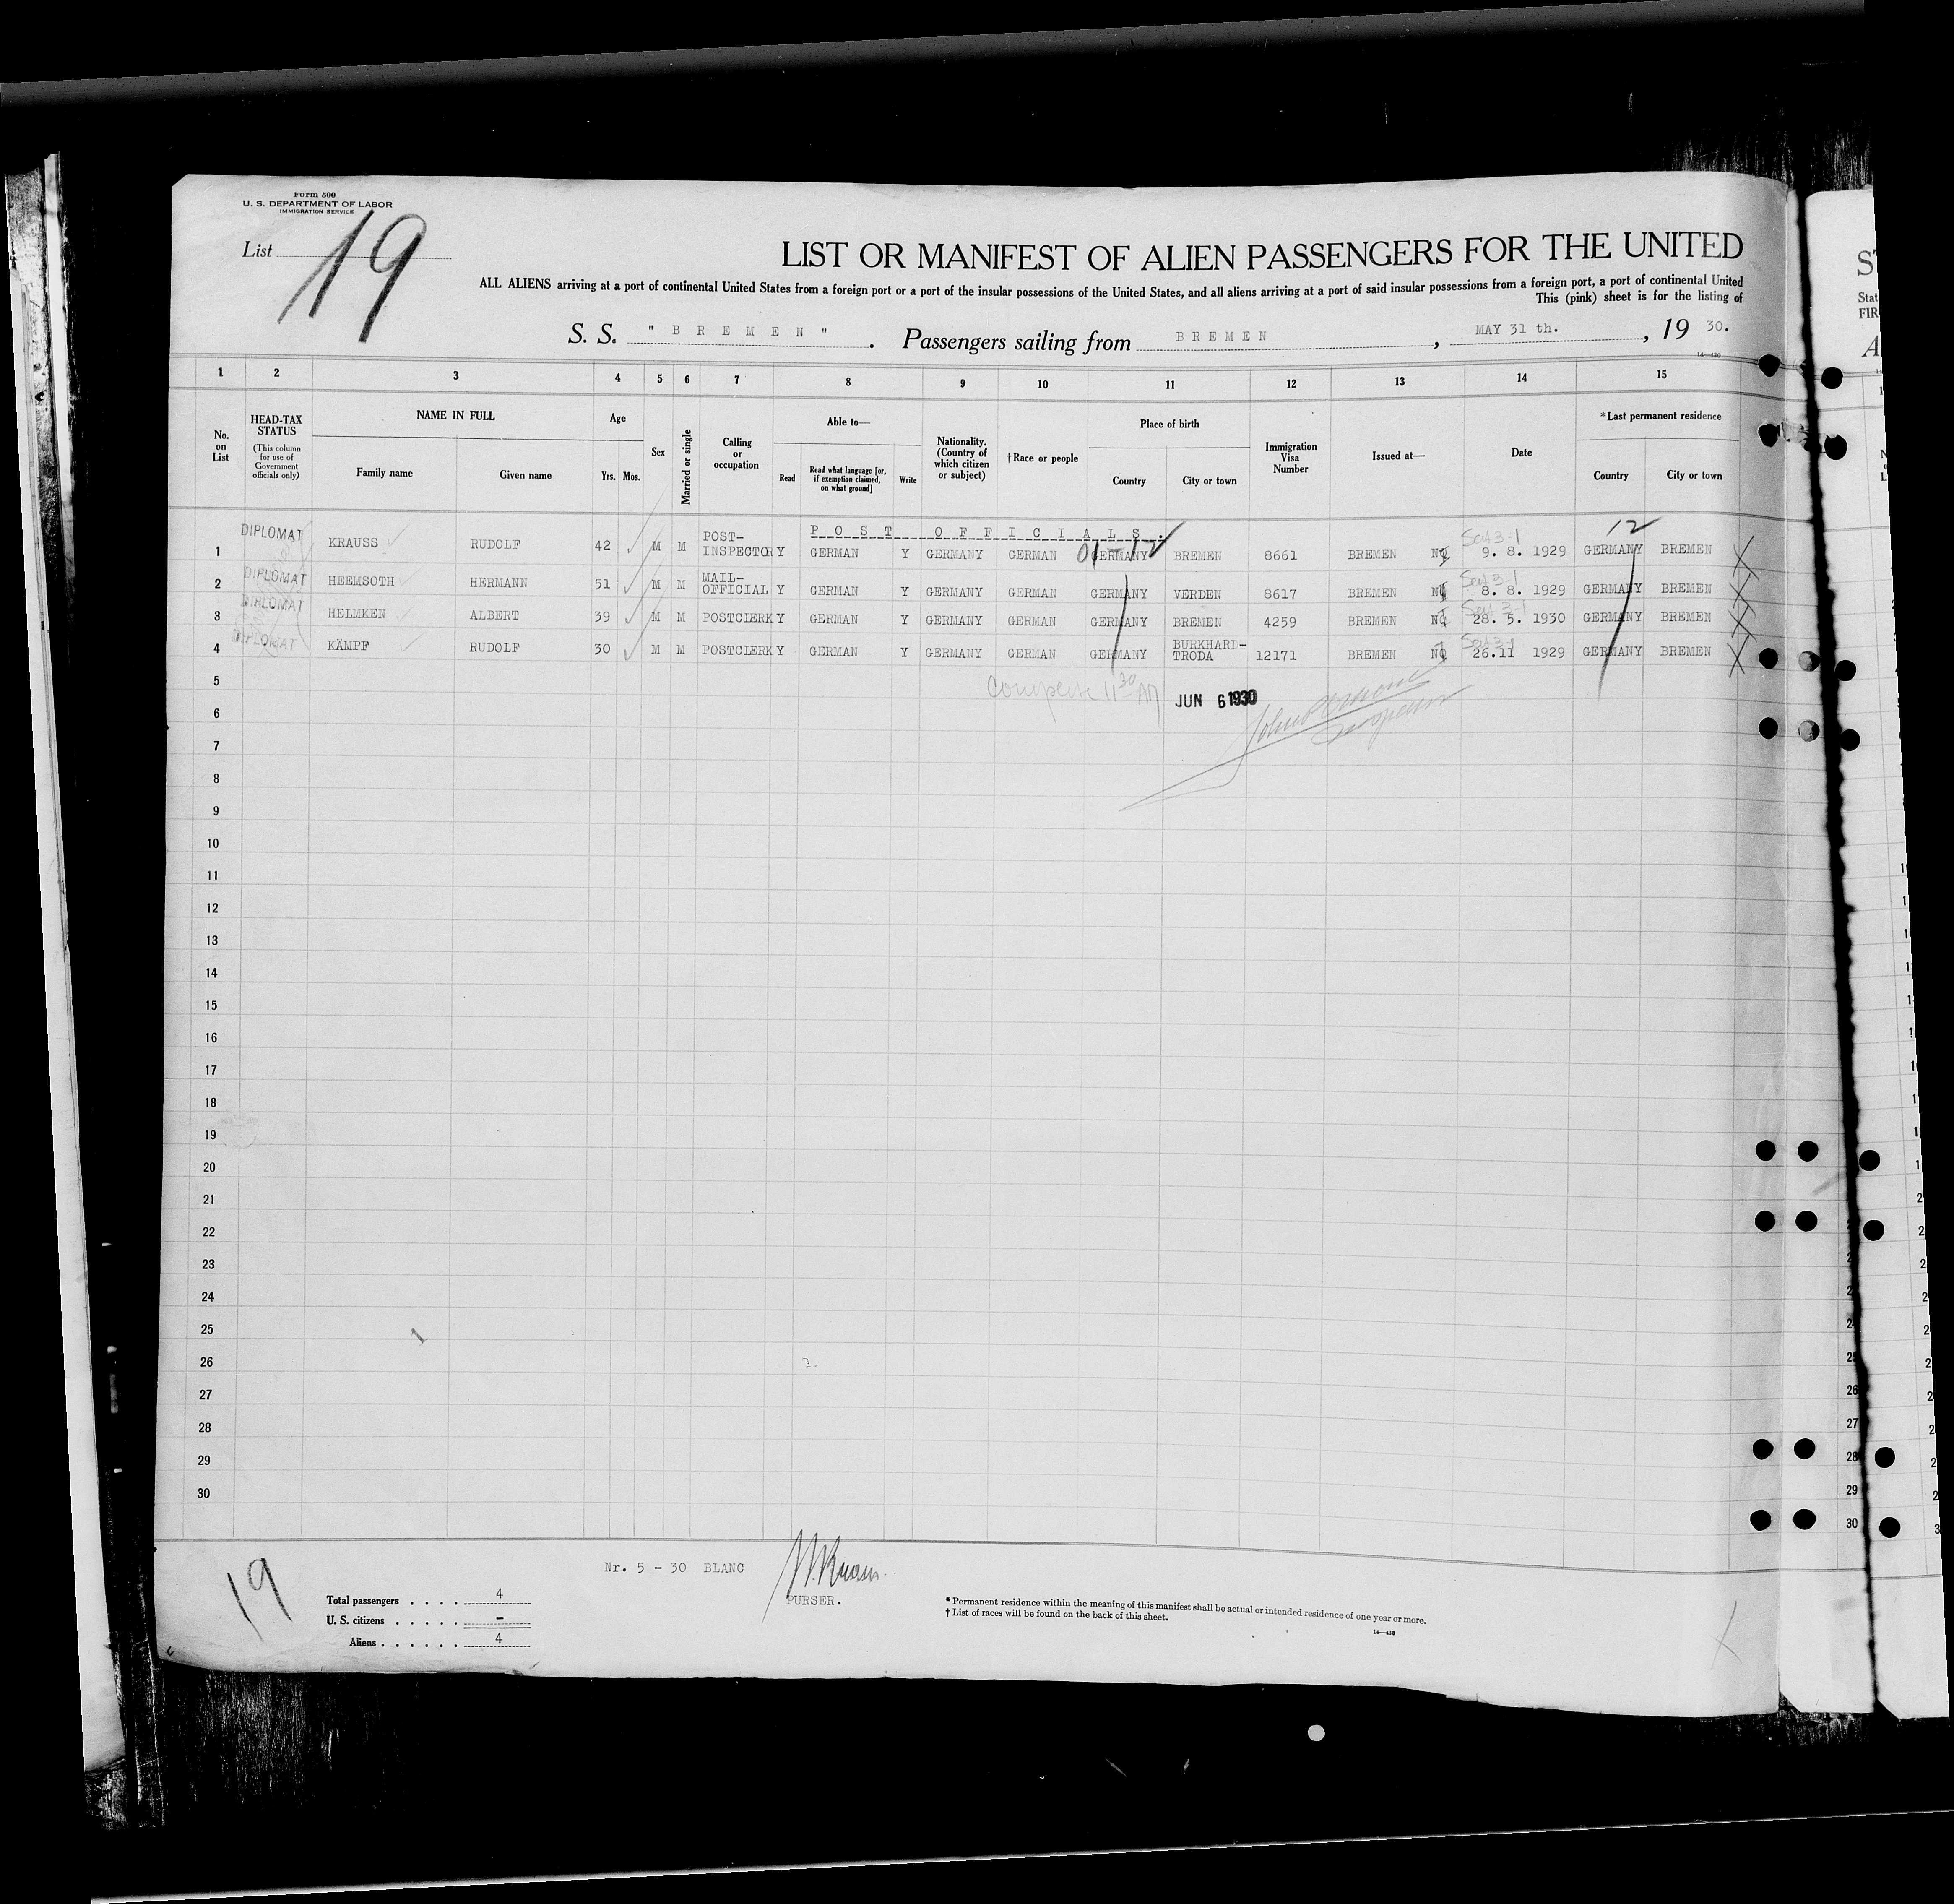 Form 500
U. S. DEPARTMENT OF LABOR
IMMIGRATION SERVICE
List 19
LIST OR MANIFEST OF ALIEN PASSENGERS FOR THE UNITED
ALL ALIENS arriving at a port of continental United States from a foreign port or a port of the insular possessions of the United States, and all aliens arriving at a port of said insular possessions from a foreign port, a port of continental United
This (pink) sheet is for the listing of
S. S. " B R E M E N " . Passengers sailing from B R E M E N , MAY 31 th. , 19 30.
1 2 3 4 5 6 7 8 9 10 11 12 13 14 15
No. on List
HEAD-TAX STATUS
(This column for use of Government officials only)
NAME IN FULL
Family name
Given name
Age
Yrs. Mos.
Sex
Married or single
Calling or occupation
Able to—
Read
Read what language [or, if exemption claimed, on what ground]
Write
Nationality. (Country of which citizen or subject)
†Race or people
Place of birth
Country
City or town
Immigration Visa Number
Issued at—
Date
*Last permanent residence
Country
City or town
P O S T O F F I C I A L S .
12
1 DIPLOMAT KRAUSS RUDOLF 42 M M POST-INSPECTOR Y GERMAN Y GERMANY GERMAN GERMANY BREMEN 8661 BREMEN 9. 8. 1929 GERMANY BREMEN
2 DIPLOMAT HEEMSOTH HERMANN 51 M M MAIL-OFFICIAL Y GERMAN Y GERMANY GERMAN GERMANY VERDEN 8617 BREMEN 8. 8. 1929 GERMANY BREMEN
3 DIPLOMAT HELMKEN ALBERT 39 M M POSTCLERK Y GERMAN Y GERMANY GERMAN GERMANY BREMEN 4259 BREMEN 28. 5. 1930 GERMANY BREMEN
4 DIPLOMAT KÄMPF RUDOLF 30 M M POSTCLERK Y GERMAN Y GERMANY GERMAN GERMANY BURKHARD-TRODA 12171 BREMEN 26.11 1929 GERMANY BREMEN
5
Complete 11 30 AM JUN 6 1930
6
7
8
9
10
11
12
13
14
15
16
17
18
19
20
21
22
23
24
25
26
27
28
29
30
19
Nr. 5 - 30 BLANC
PURSER.
Total passengers . . . . 4
U. S. citizens . . . . . –
Aliens . . . . . . 4
* Permanent residence within the meaning of this manifest shall be actual or intended residence of one year or more.
† List of races will be found on the back of this sheet.